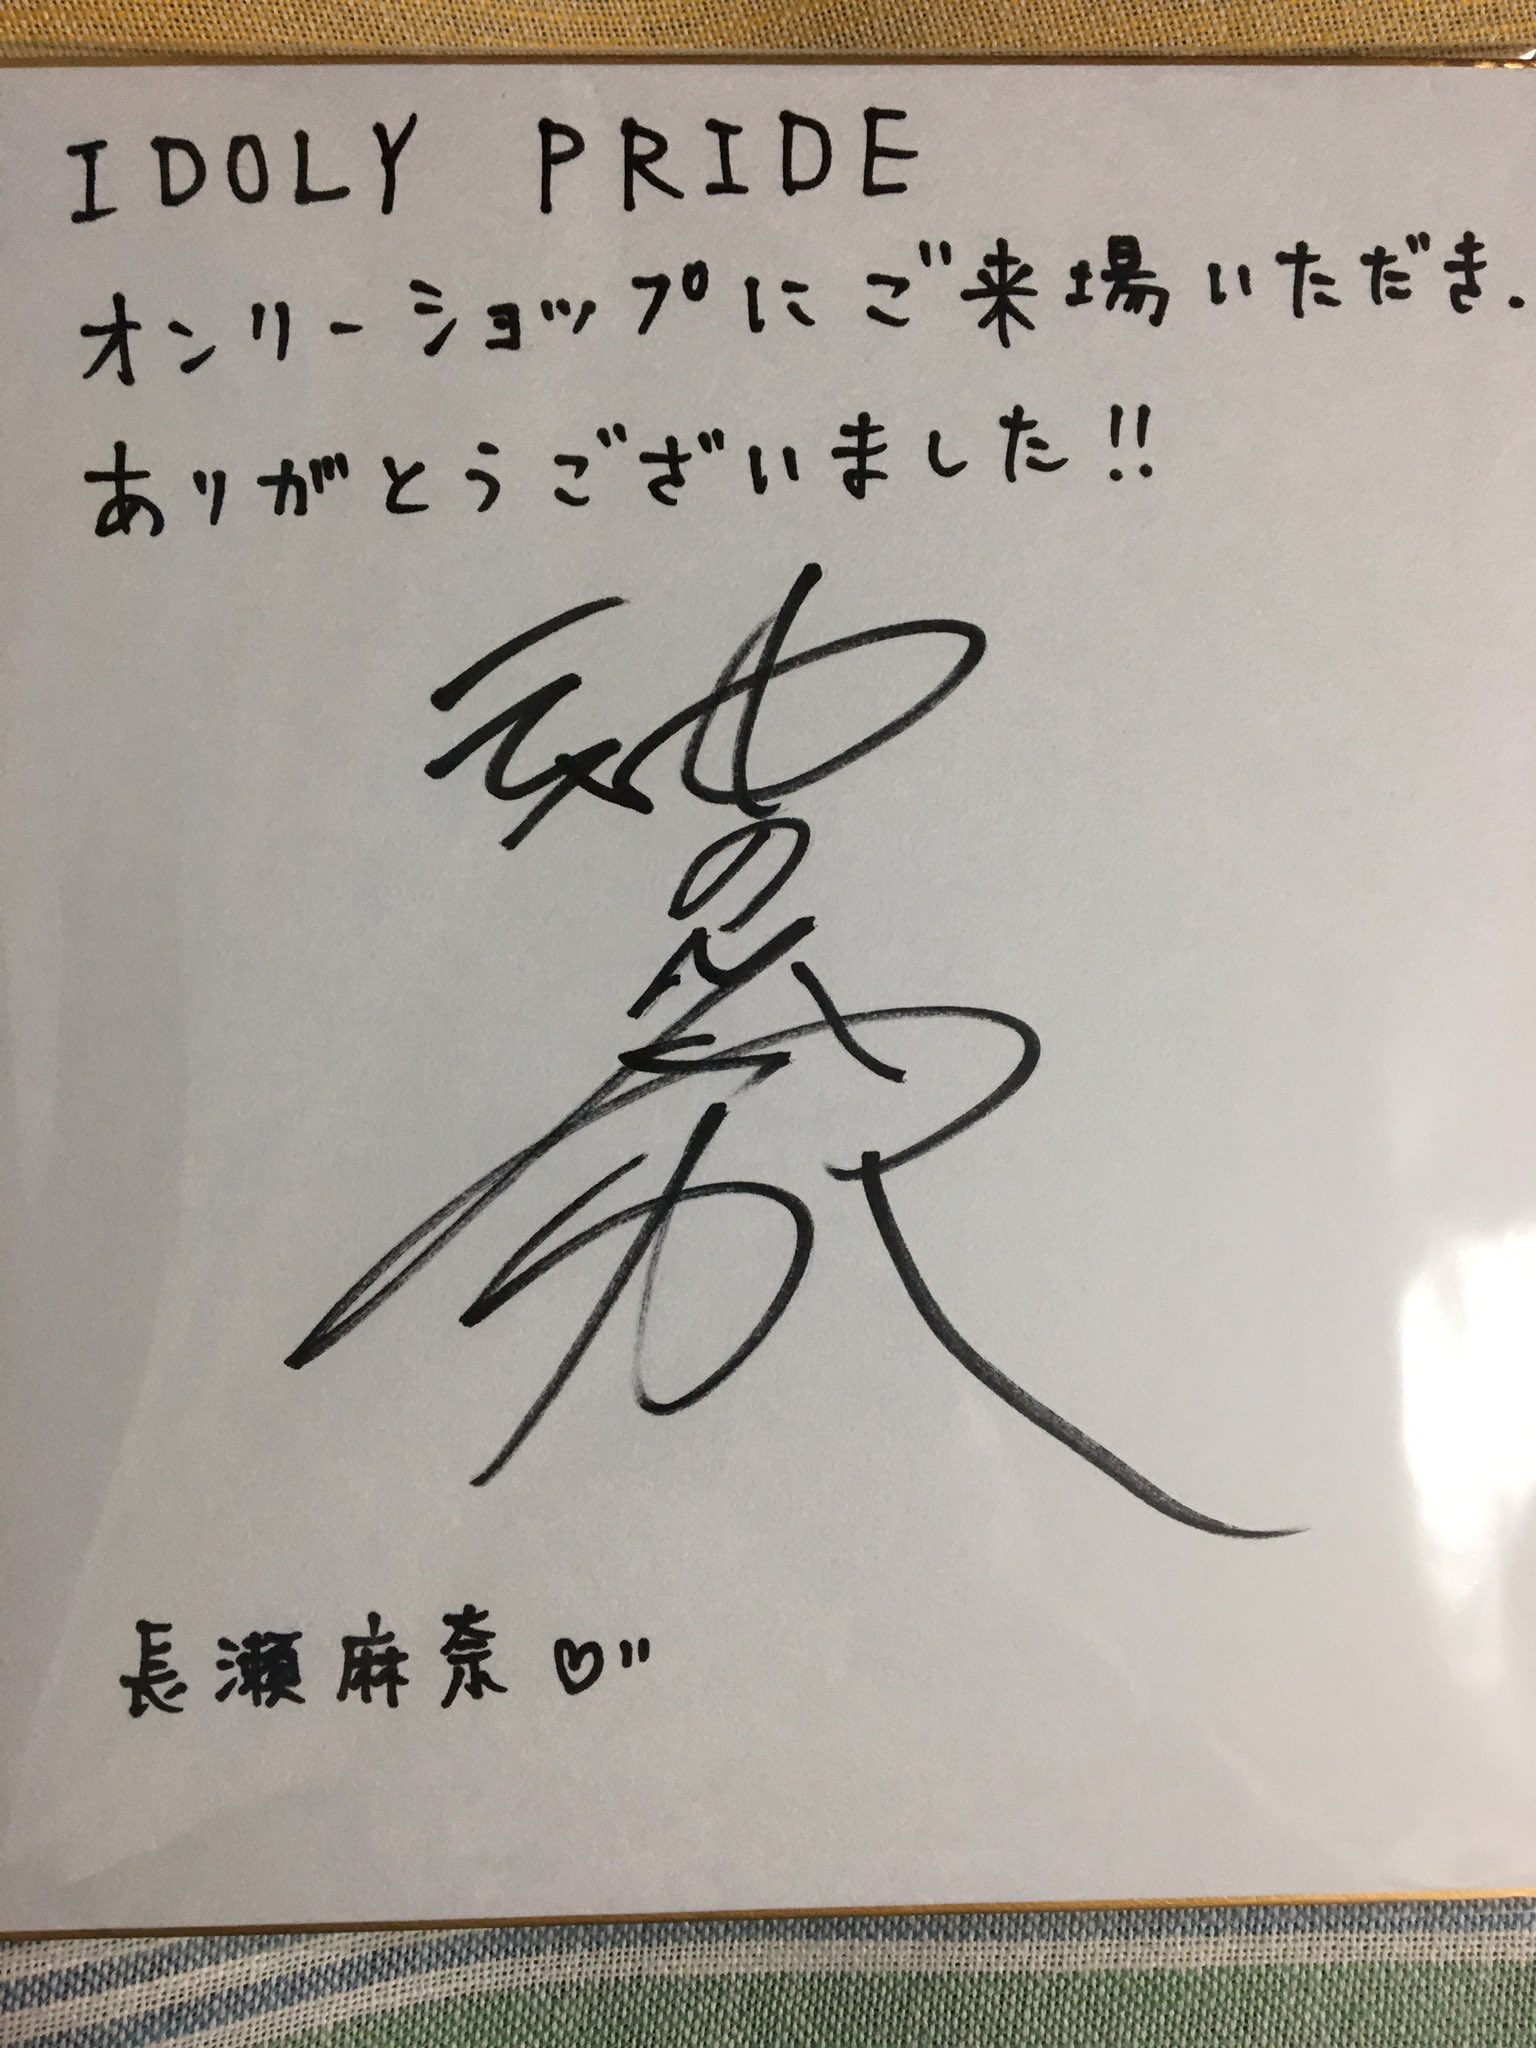 IDOLY PRIDE
オンリーショップにご来場いただき、
ありがとうございました!!
長瀬麻奈♡"